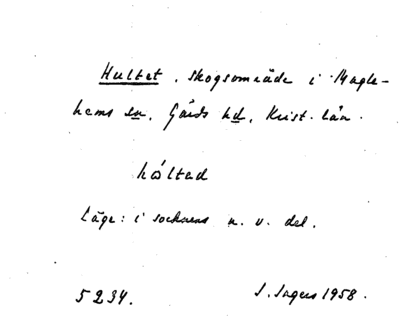 Hultet, skogsområde i Magle-
hems sn, Gärds hd, Krist. län.
hóltad
Läge: i socknens n. v. del.
5234. S. Sagers 1958.